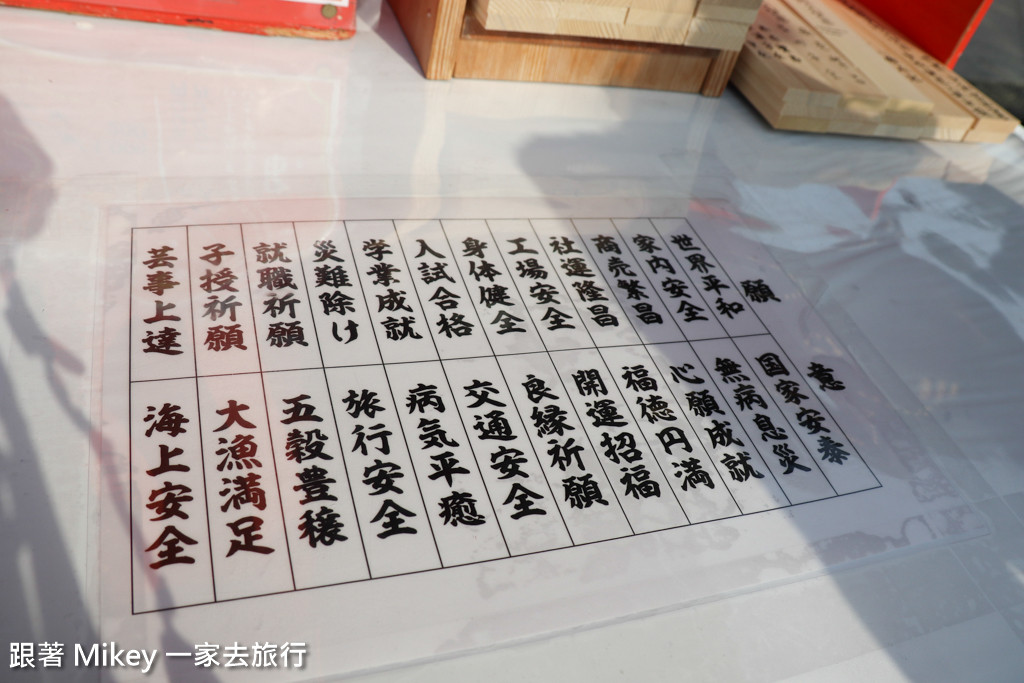 願意
世界平和
家内安全
商売繁昌
社運隆昌
工場安全
身体健全
入試合格
学業成就
災難除け
就職祈願
子授祈願
芸事上達
国家安泰
無病息災
心願成就
福徳円満
開運招福
良縁祈願
交通安全
病気平癒
旅行安全
五穀豊穣
大漁満足
海上安全
跟著 Mikey 一家去旅行